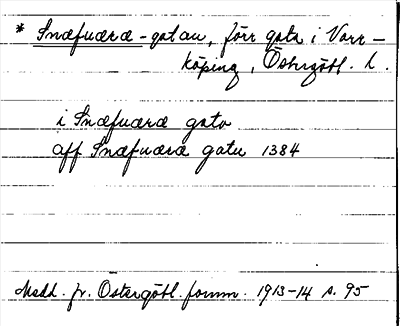 * Snæfuæræ-gatan, förr gata i Norr-
köping, Östergötl. l.
i Snæfuæræ gato
aff Snæfuæræ gatu 1384
Medd. fr. Östergötl. fornm. 1913-14 s. 95